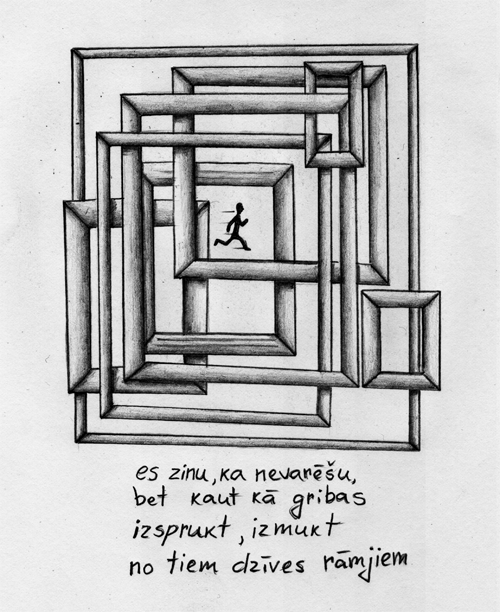 es zinu, ka nevarēšu,
bet kaut kā gribas
izsprukt, izmukt
no tiem dzīves rāmjiem